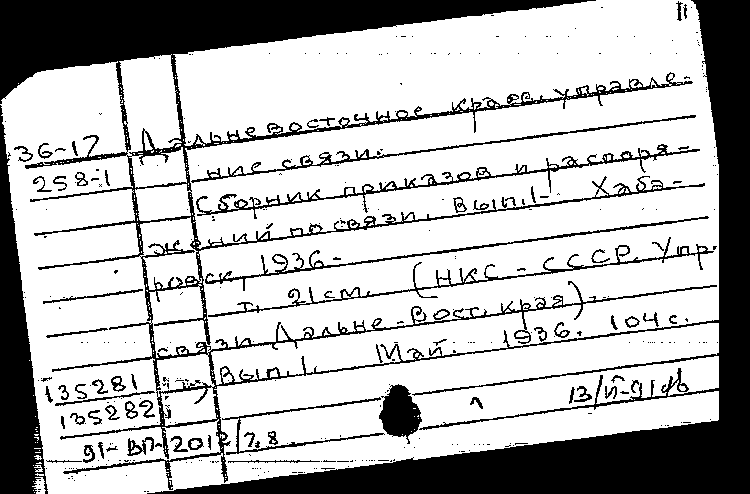 II
Дальневосточное краев. управле-
36-17
ние связи.
258-1
Сборник приказов и распоря-
жений по связи. Вып.1- Хаба-
ровск, 1936-
т. 21 см. (НКС-СССР. Упр.
связи Дальне-Вост. края).
Вып. 1. Май. 1936. 104 с.
135281
135282
91-ВП-2012/7,8
13/VI-91